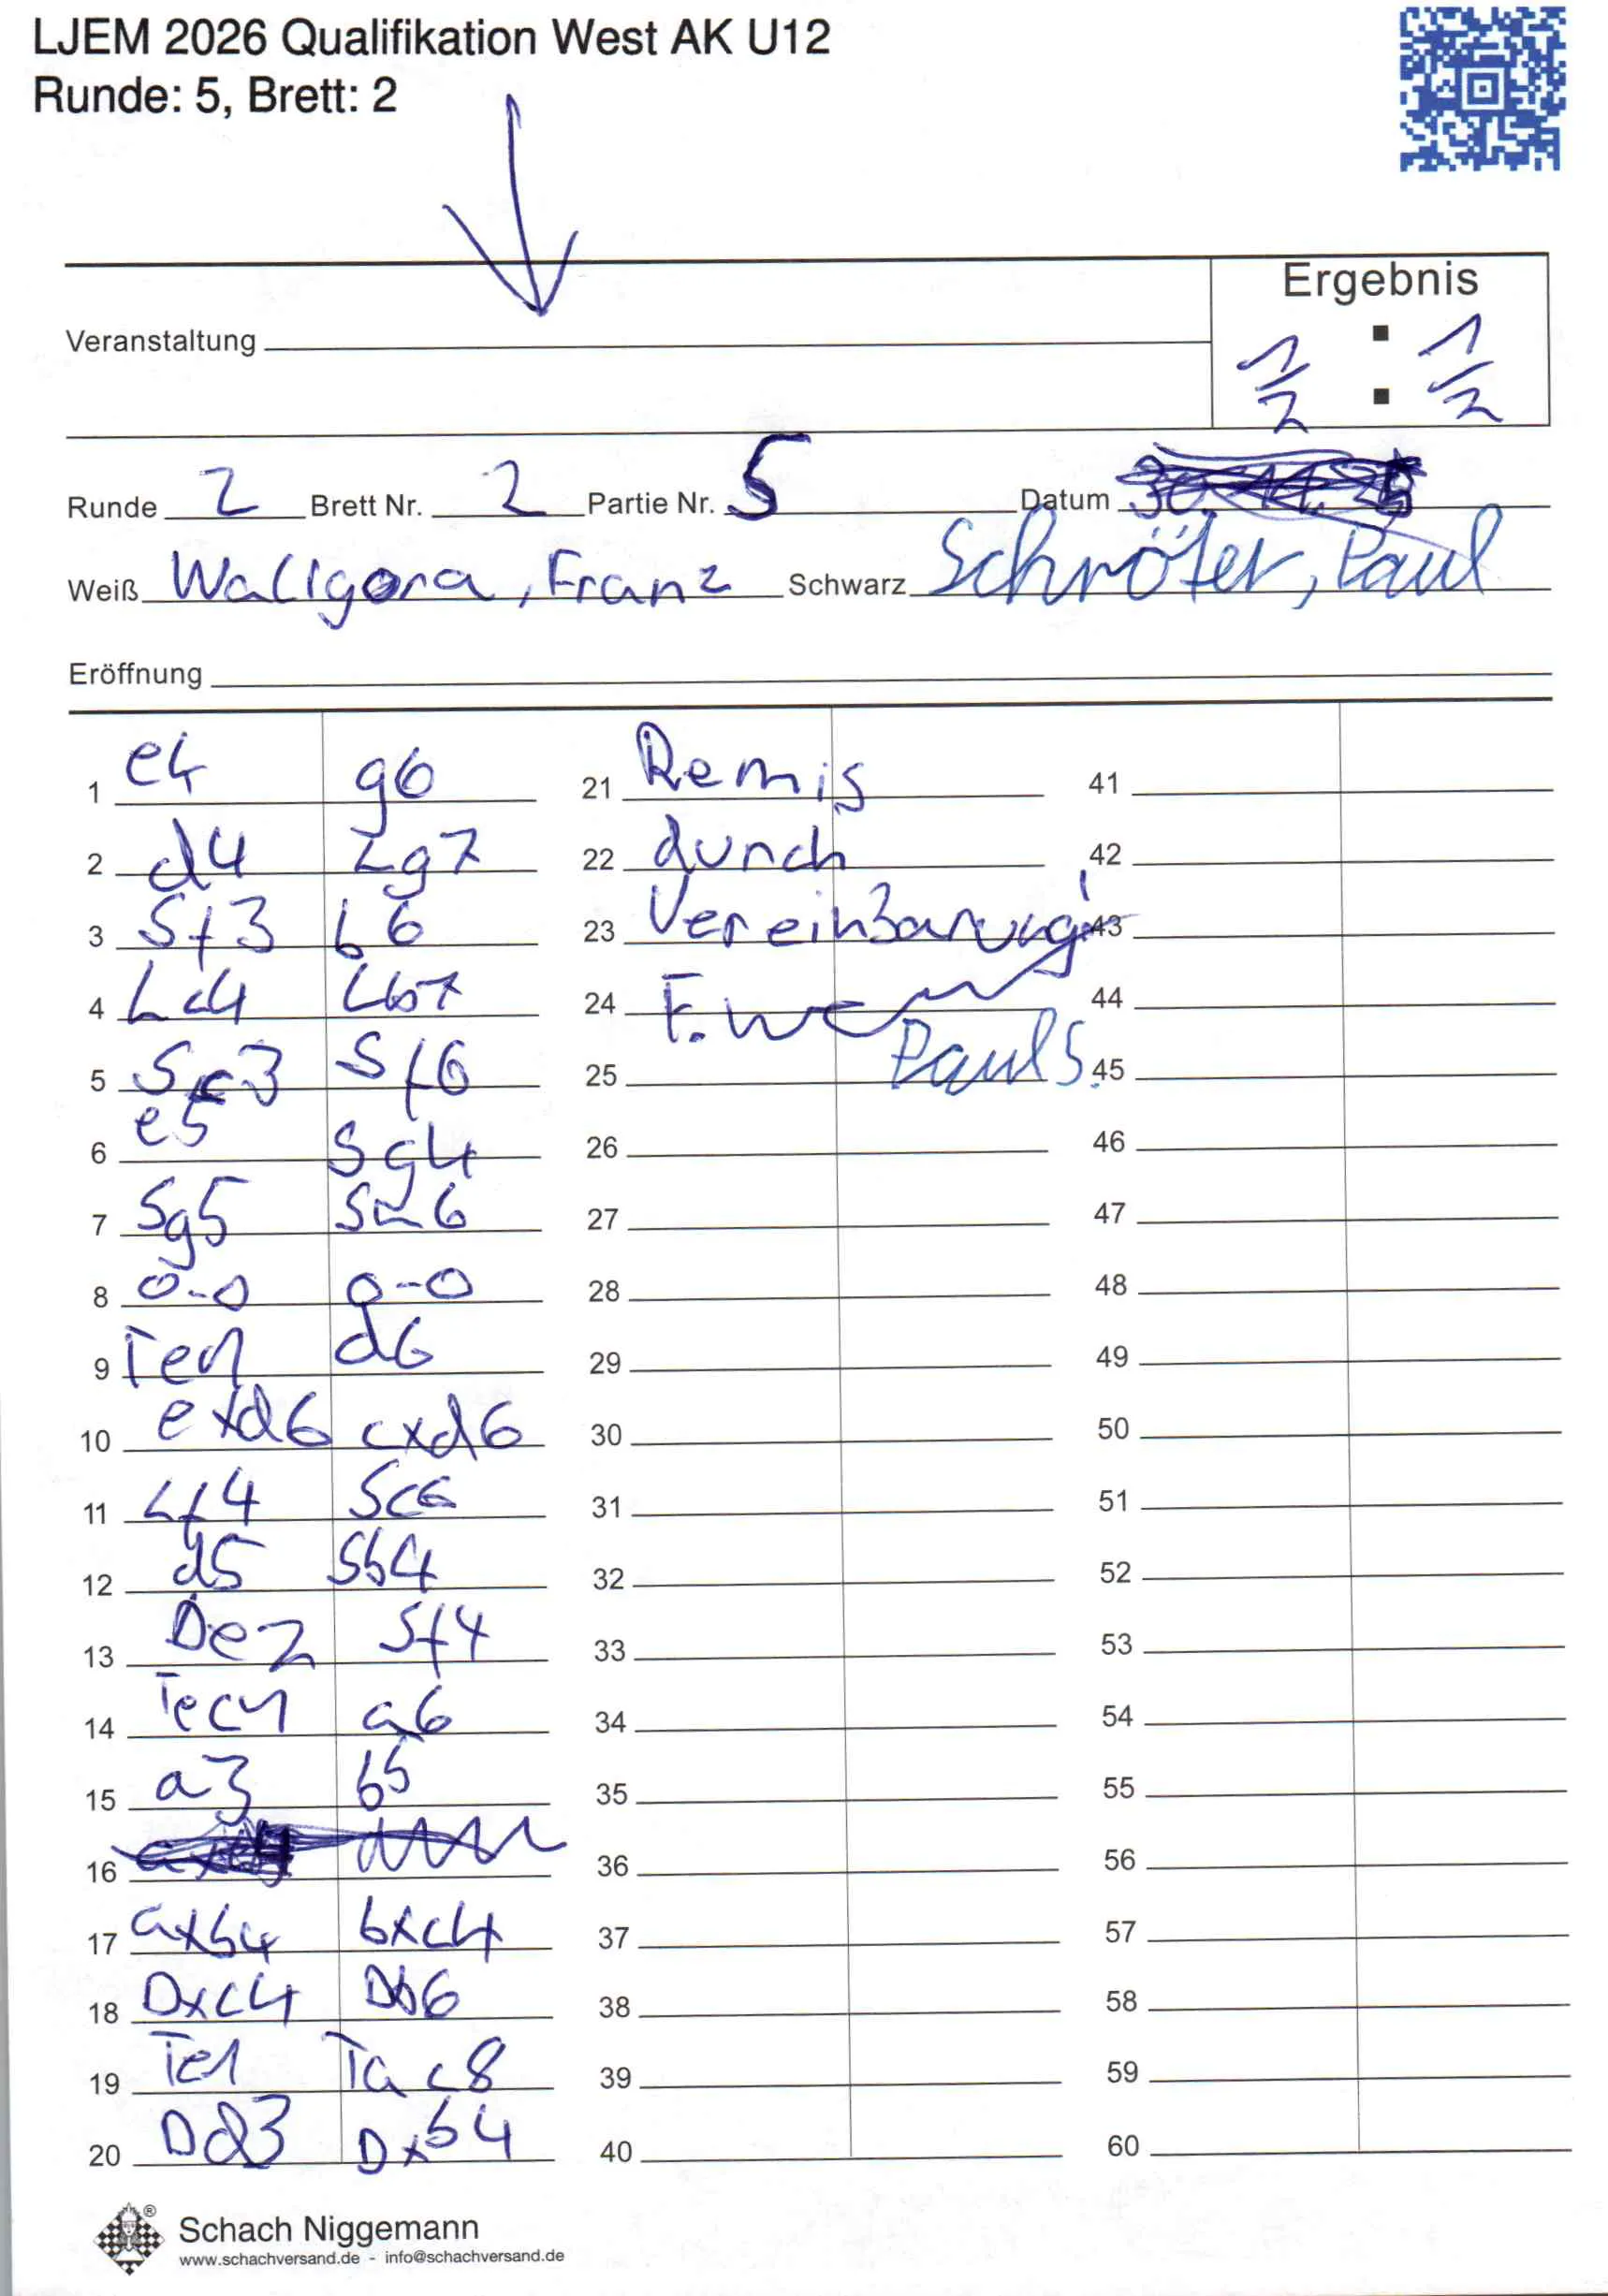 LJEM 2026 Qualifikation West AK U12
Runde: 5, Brett: 2
Ergebnis
Veranstaltung
1/2 : 1/2
Runde 2 Brett Nr. 2 Partie Nr. 5 Datum
Weiß Wallgora, Franz Schwarz Schröter, Paul
Eröffnung
1 e4 g6
2 d4 Lg7
3 Sf3 b6
4 Lc4 Lb7
5 Sc3 Sf6
6 e5 Sg4
7 Sg5 Sh6
8 0-0 0-0
9 Te1 d6
10 exd6 cxd6
11 Lf4 Sc6
12 d5 Sb4
13 De2 Sf4
14 Tec1 a6
15 a3 b5
16
17 axb4 bxc4
18 Dxc4 Db6
19 Te1 Tac8
20 Dd3 Dxb4
21 Remis
22 durch
23 Vereinbarung!
24 F. W
25 Paul S.
26
27
28
29
30
31
32
33
34
35
36
37
38
39
40
41
42
43
44
45
46
47
48
49
50
51
52
53
54
55
56
57
58
59
60
Schach Niggemann
www.schachversand.de - info@schachversand.de